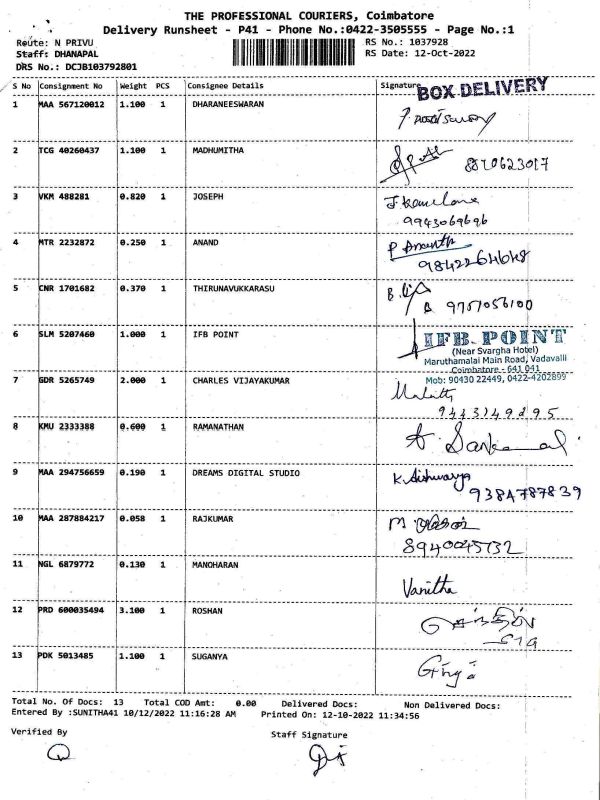 THE PROFESSIONAL COURIERS, Coimbatore
Delivery Runsheet - P41 - Phone No.:0422-3505555 - Page No.:1
Route: N PRIVU RS No.: 1037928
Staff: DHANAPAL RS Date: 12-Oct-2022
DRS No.: DCJB103792801
S No Consignment No Weight PCS Consignee Details Signature
BOX DELIVERY
1 MAA 567120012 1.100 1 DHARANEESWARAN
2 TCG 40260437 1.100 1 MADHUMITHA 8870623017
3 VKM 488281 0.820 1 JOSEPH
9943069696
4 MTR 2232872 0.250 1 ANAND P Ananth
9842264648
5 CNR 1701682 0.370 1 THIRUNAVUKKARASU
9751056100
6 SLM 5207460 1.000 1 IFB POINT IFB POINT
(Near Svargha Hotel)
Maruthamalai Main Road, Vadavalli
Coimbatore - 641 041
Mob: 90430 22449, 0422-4202899
7 GDR 5265749 2.000 1 CHARLES VIJAYAKUMAR
9443149295
8 KMU 2333388 0.600 1 RAMANATHAN
9 MAA 294756659 0.190 1 DREAMS DIGITAL STUDIO K. Aishwarya
9384787839
10 MAA 287884217 0.058 1 RAJKUMAR
8940045732
11 NGL 6879772 0.130 1 MANOHARAN Vanitha
12 PRD 600035494 3.100 1 ROSHAN செந்தில்
13 PDK 5013485 1.100 1 SUGANYA
Total No. Of Docs: 13 Total COD Amt: 0.00 Delivered Docs: Non Delivered Docs:
Entered By :SUNITHA41 10/12/2022 11:16:28 AM Printed On: 12-10-2022 11:34:56
Verified By Staff Signature